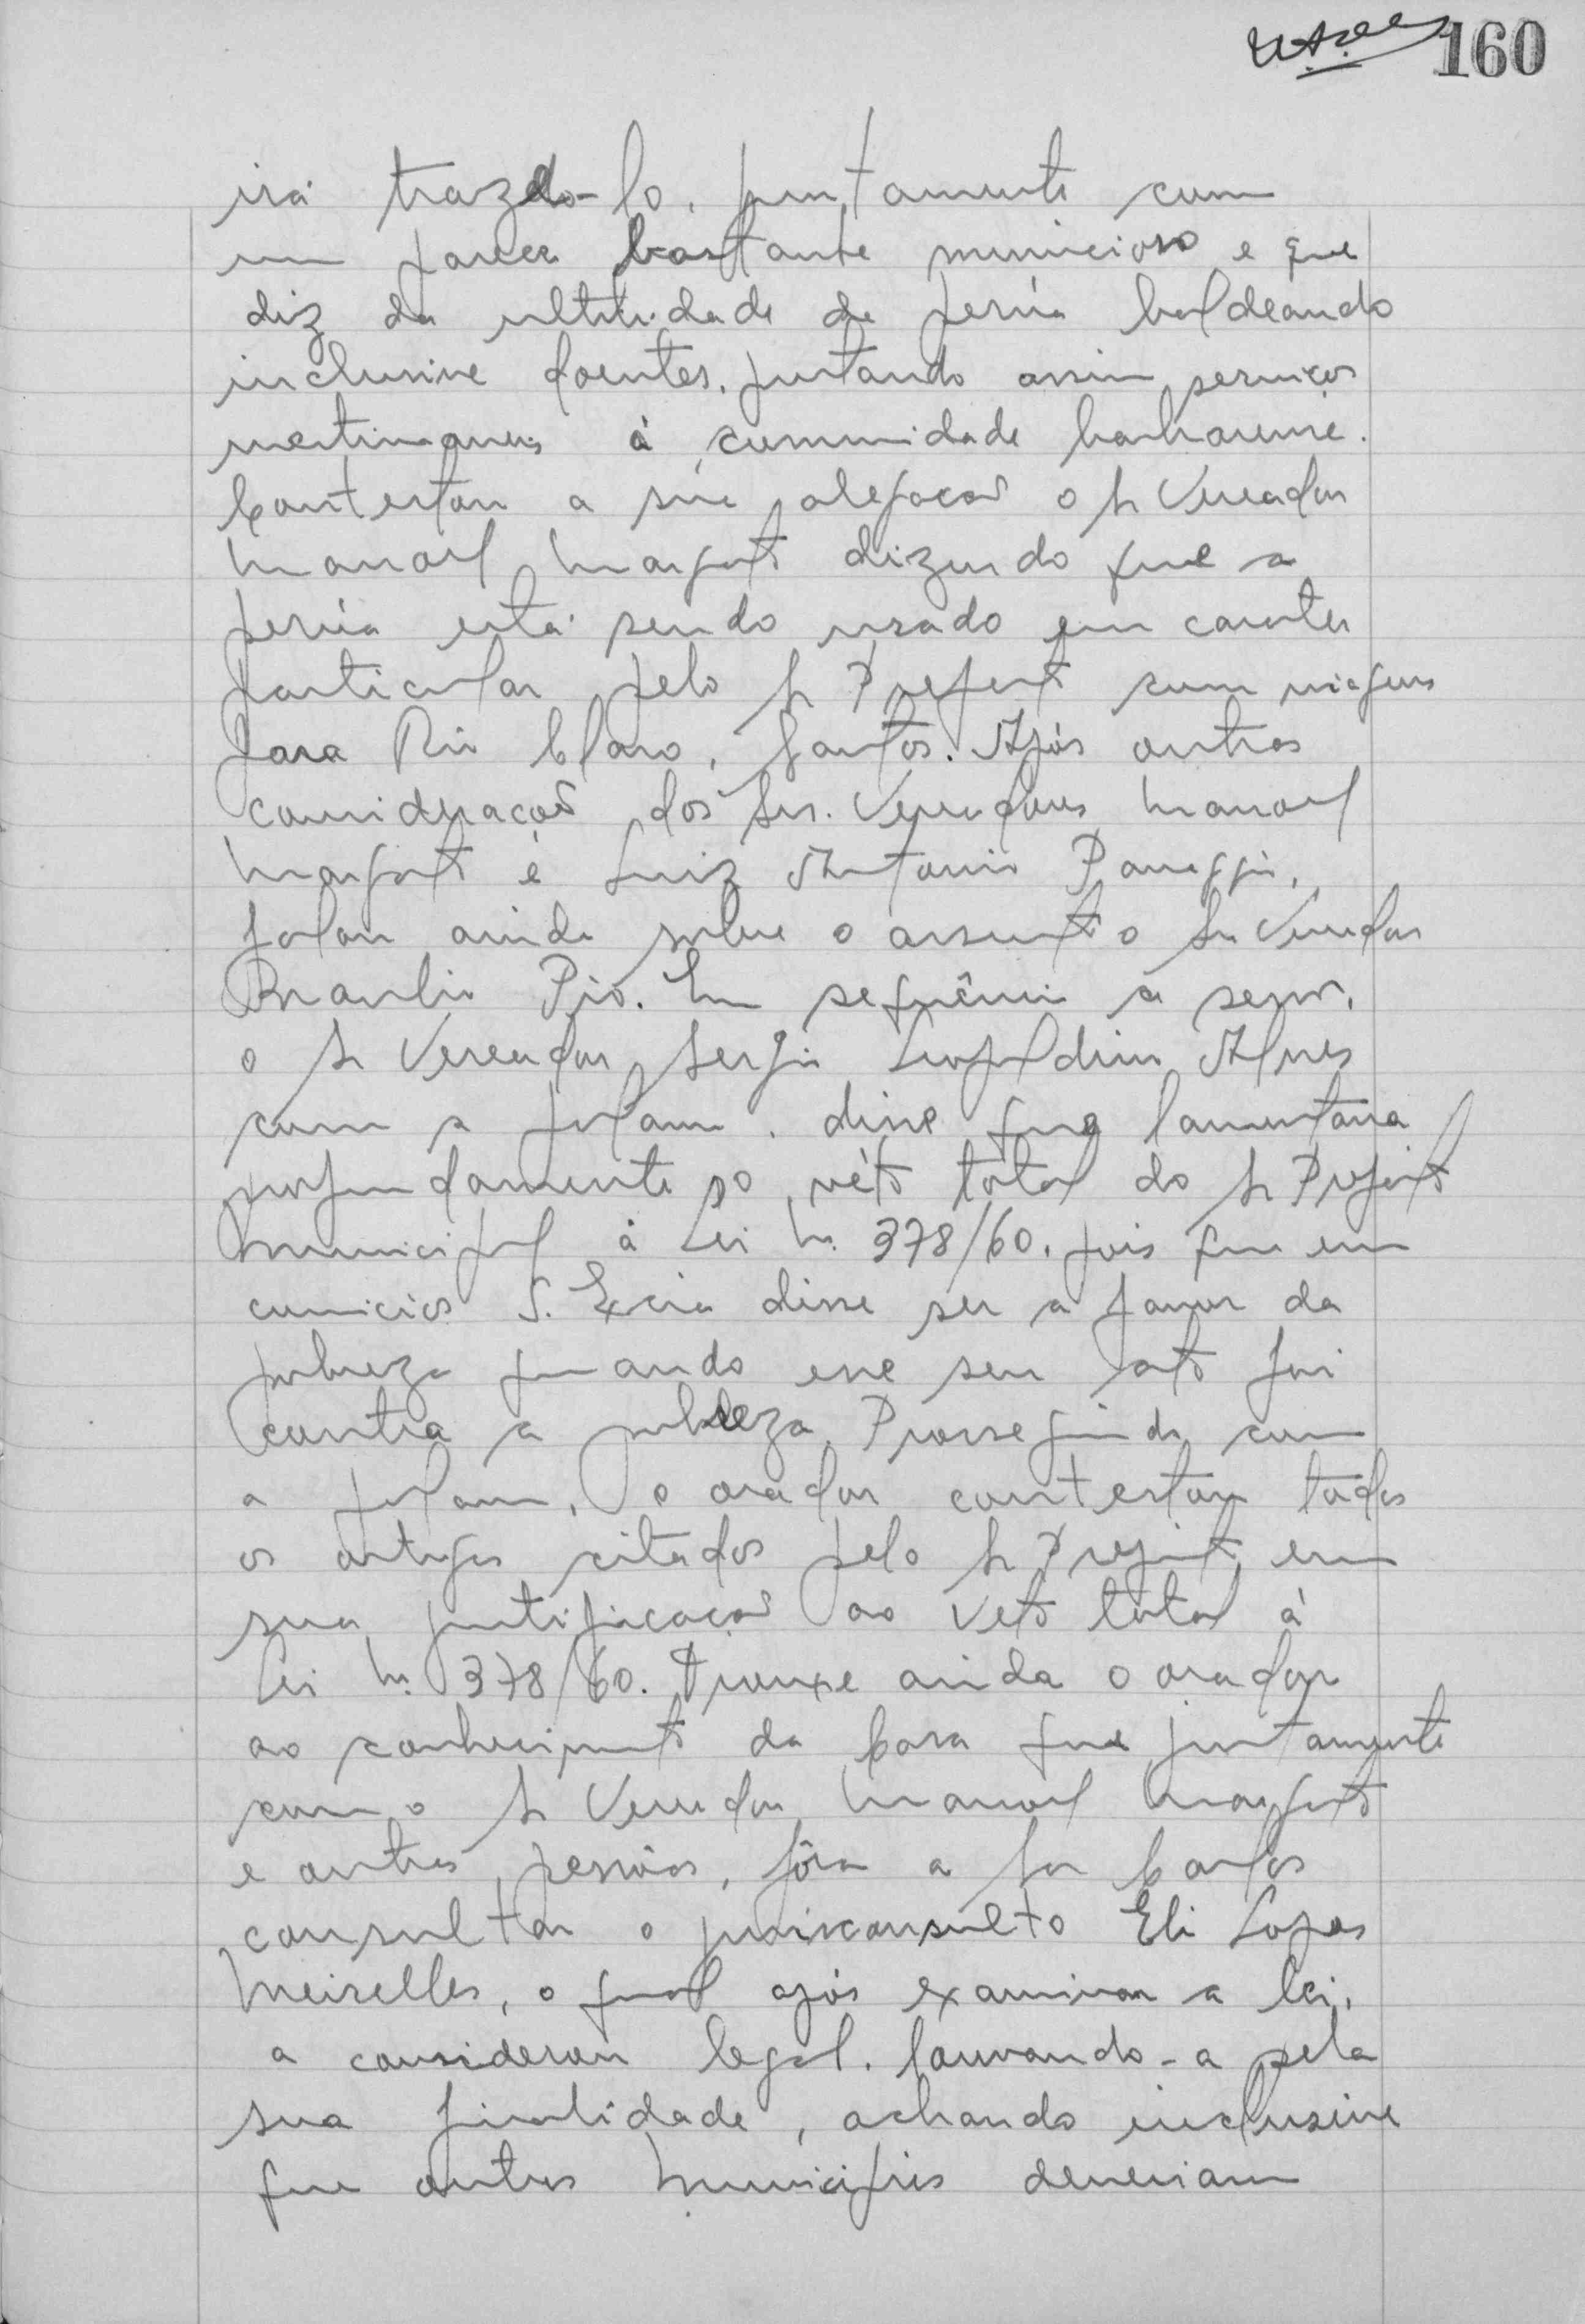 160
irá trazê-lo, juntamente com
um parecer bastante minucioso e que
diz da utilidade da perúa baldeando
inclusive doentes, prestando assim serviços
inestimaveis á comunidade
Contestou a sua alegação o Sr Vereador
Manoel Margato dizendo que a
perúa está sendo usado em carater
particular pelo Sr Prefeito com viagens
para Rio Claro, Santos. Após outras
consideração dos Srs. Vereadores Manoel
Margato e Luiz Antonio Panaggio,
falou ainda sobre o assunto o Sr Vereador
Braulio Pio. Em sequência a
o Sr Vereador Sergio Leopoldino Alves
com a palavra, disse que lamentava
profundamente o véto total do Sr Prefeito
Municipal á Lei n. 378/60, pois que em
comicios S. Excia disse ser a favor da
pobreza quando esse seu ato foi
contra a pobreza. Prosseguindo com
a palavra, o orador contestou todos
os artigos citados pelo Sr Prefeito em
sua justificação ao Veto total á
Lei n. 378/60. Trouxe ainda o orador
ao conhecimento da Casa que juntamente
com o Sr Vereador Manoel Margato
e outras pessôas, fôra a São Carlos
consultar o jurisconsulto Eli Lopes
Meirelles, o qual após examinar a lei,
a considerou legal, louvando-a pela
sua finalidade, achando inclusive
que outros Municipios deveriam